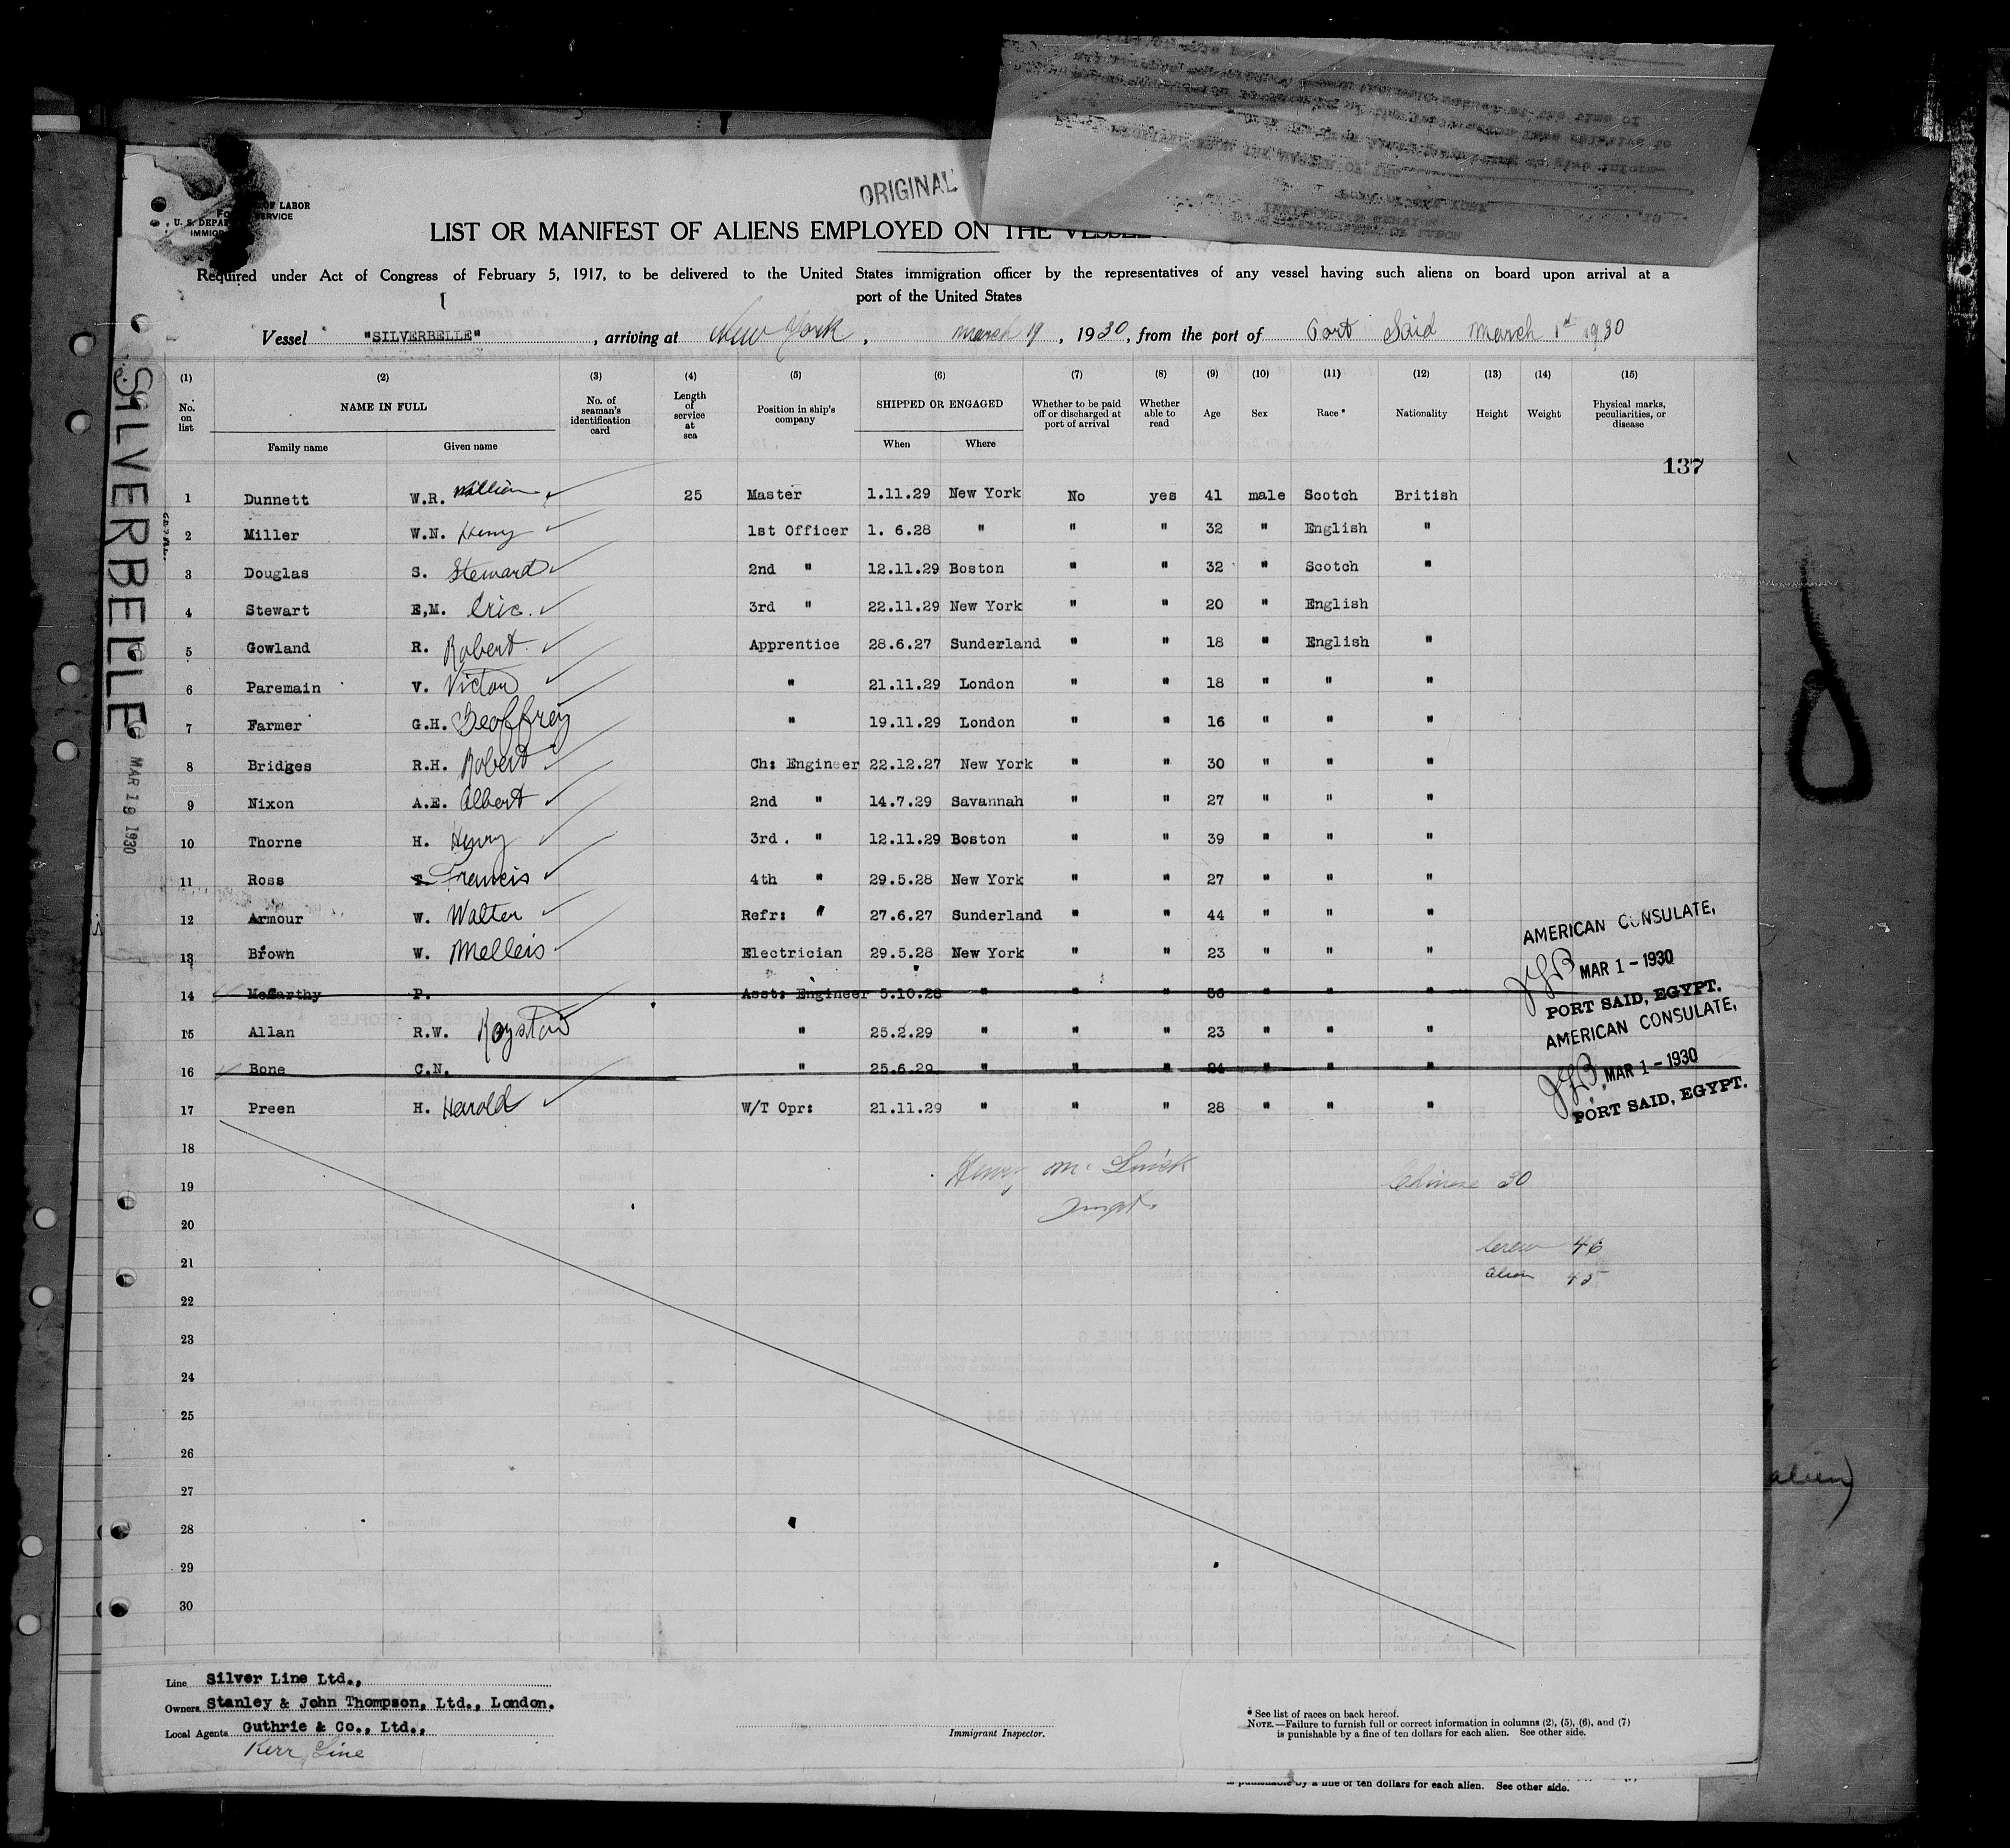 ORIGINAL
OF LABOR
U. S. DEPA SERVICE
IMMIG
LIST OR MANIFEST OF ALIENS EMPLOYED ON THE VESSEL
Required under Act of Congress of February 5, 1917, to be delivered to the United States immigration officer by the representatives of any vessel having such aliens on board upon arrival at a
port of the United States
Vessel "SILVERBELLE", arriving at New York, March 19, 1930, from the port of Port Said March 1st 1930
(1) (2) (3) (4) (5) (6) (7) (8) (9) (10) (11) (12) (13) (14) (15)
No. on list NAME IN FULL Family name Given name No. of seaman's identification card Length of service at sea Position in ship's company SHIPPED OR ENGAGED When Where Whether to be paid off or discharged at port of arrival Whether able to read Age Sex Race * Nationality Height Weight Physical marks, peculiarities, or disease
137
1 Dunnett W.R. William 25 Master 1.11.29 New York No yes 41 male Scotch British
2 Miller W.N. Henry 1st Officer 1. 6.28 " " " 32 " English "
3 Douglas S. Steward 2nd " 12.11.29 Boston " " 32 " Scotch "
4 Stewart E,M. Eric. 3rd " 22.11.29 New York " " 20 " English
5 Gowland R. Robert Apprentice 28.6.27 Sunderland " " 18 " English "
6 Paremain V. Victor " 21.11.29 London " " 18 " " "
7 Farmer G.H. Geoffrey " 19.11.29 London " " 16 " " "
8 Bridges R.H. Robert Ch: Engineer 22.12.27 New York " " 30 " " "
9 Nixon A.E. Albert 2nd " 14.7.29 Savannah " " 27 " " "
10 Thorne H. Henry 3rd. " 12.11.29 Boston " " 39 " " "
11 Ross Francis 4th " 29.5.28 New York " " 27 " " "
12 Armour W. Walter Refr: " 27.6.27 Sunderland " " 44 " " "
13 Brown W. Melleis Electrician 29.5.28 New York " " 23 " " "
14 McCarthy P. Asst: Engineer 5.10.28 " " " 36 " " "
15 Allan R.W. Royston " 25.2.29 " " " 23 " " "
16 Bone C.N. " 25.6.29 " " " 24 " " "
17 Preen H. Harold W/T Opr: 21.11.29 " " " 28 " " "
AMERICAN CONSULATE,
MAR 1 - 1930
PORT SAID, EGYPT.
AMERICAN CONSULATE,
MAR 1 - 1930
PORT SAID, EGYPT.
18
Henry M.
19 Chinese 30
20 Inspt.
Crew 46
21 Alien 45
22
23
24
25
26
27
28
29
30
Line Silver Line Ltd.,
Owners Stanley & John Thompson, Ltd., London.
Local Agents Guthrie & Co., Ltd.,
Kerr Line
Immigrant Inspector.
* See list of races on back hereof.
NOTE.—Failure to furnish full or correct information in columns (2), (5), (6), and (7)
is punishable by a fine of ten dollars for each alien. See other side.
is punishable by a fine of ten dollars for each alien. See other side.
SILVERBELLE
MAR 19 1930
alien)